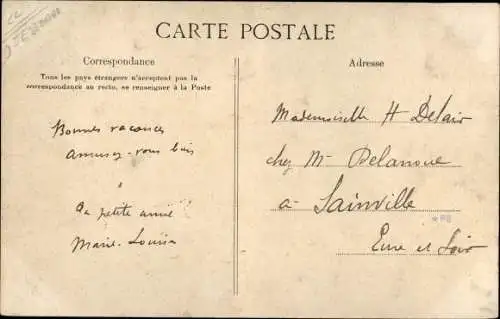 CARTE POSTALE
Correspondance
Tous les pays étrangers n'acceptent pas la
correspondance au recto, se renseigner à la Poste
Adresse
Bonnes vacances
Amusez-vous bien
Ta petite amie
Marie-Louise
Mademoiselle H Delair
chez Mr Delanoue
a Sainville
Eure et Loir